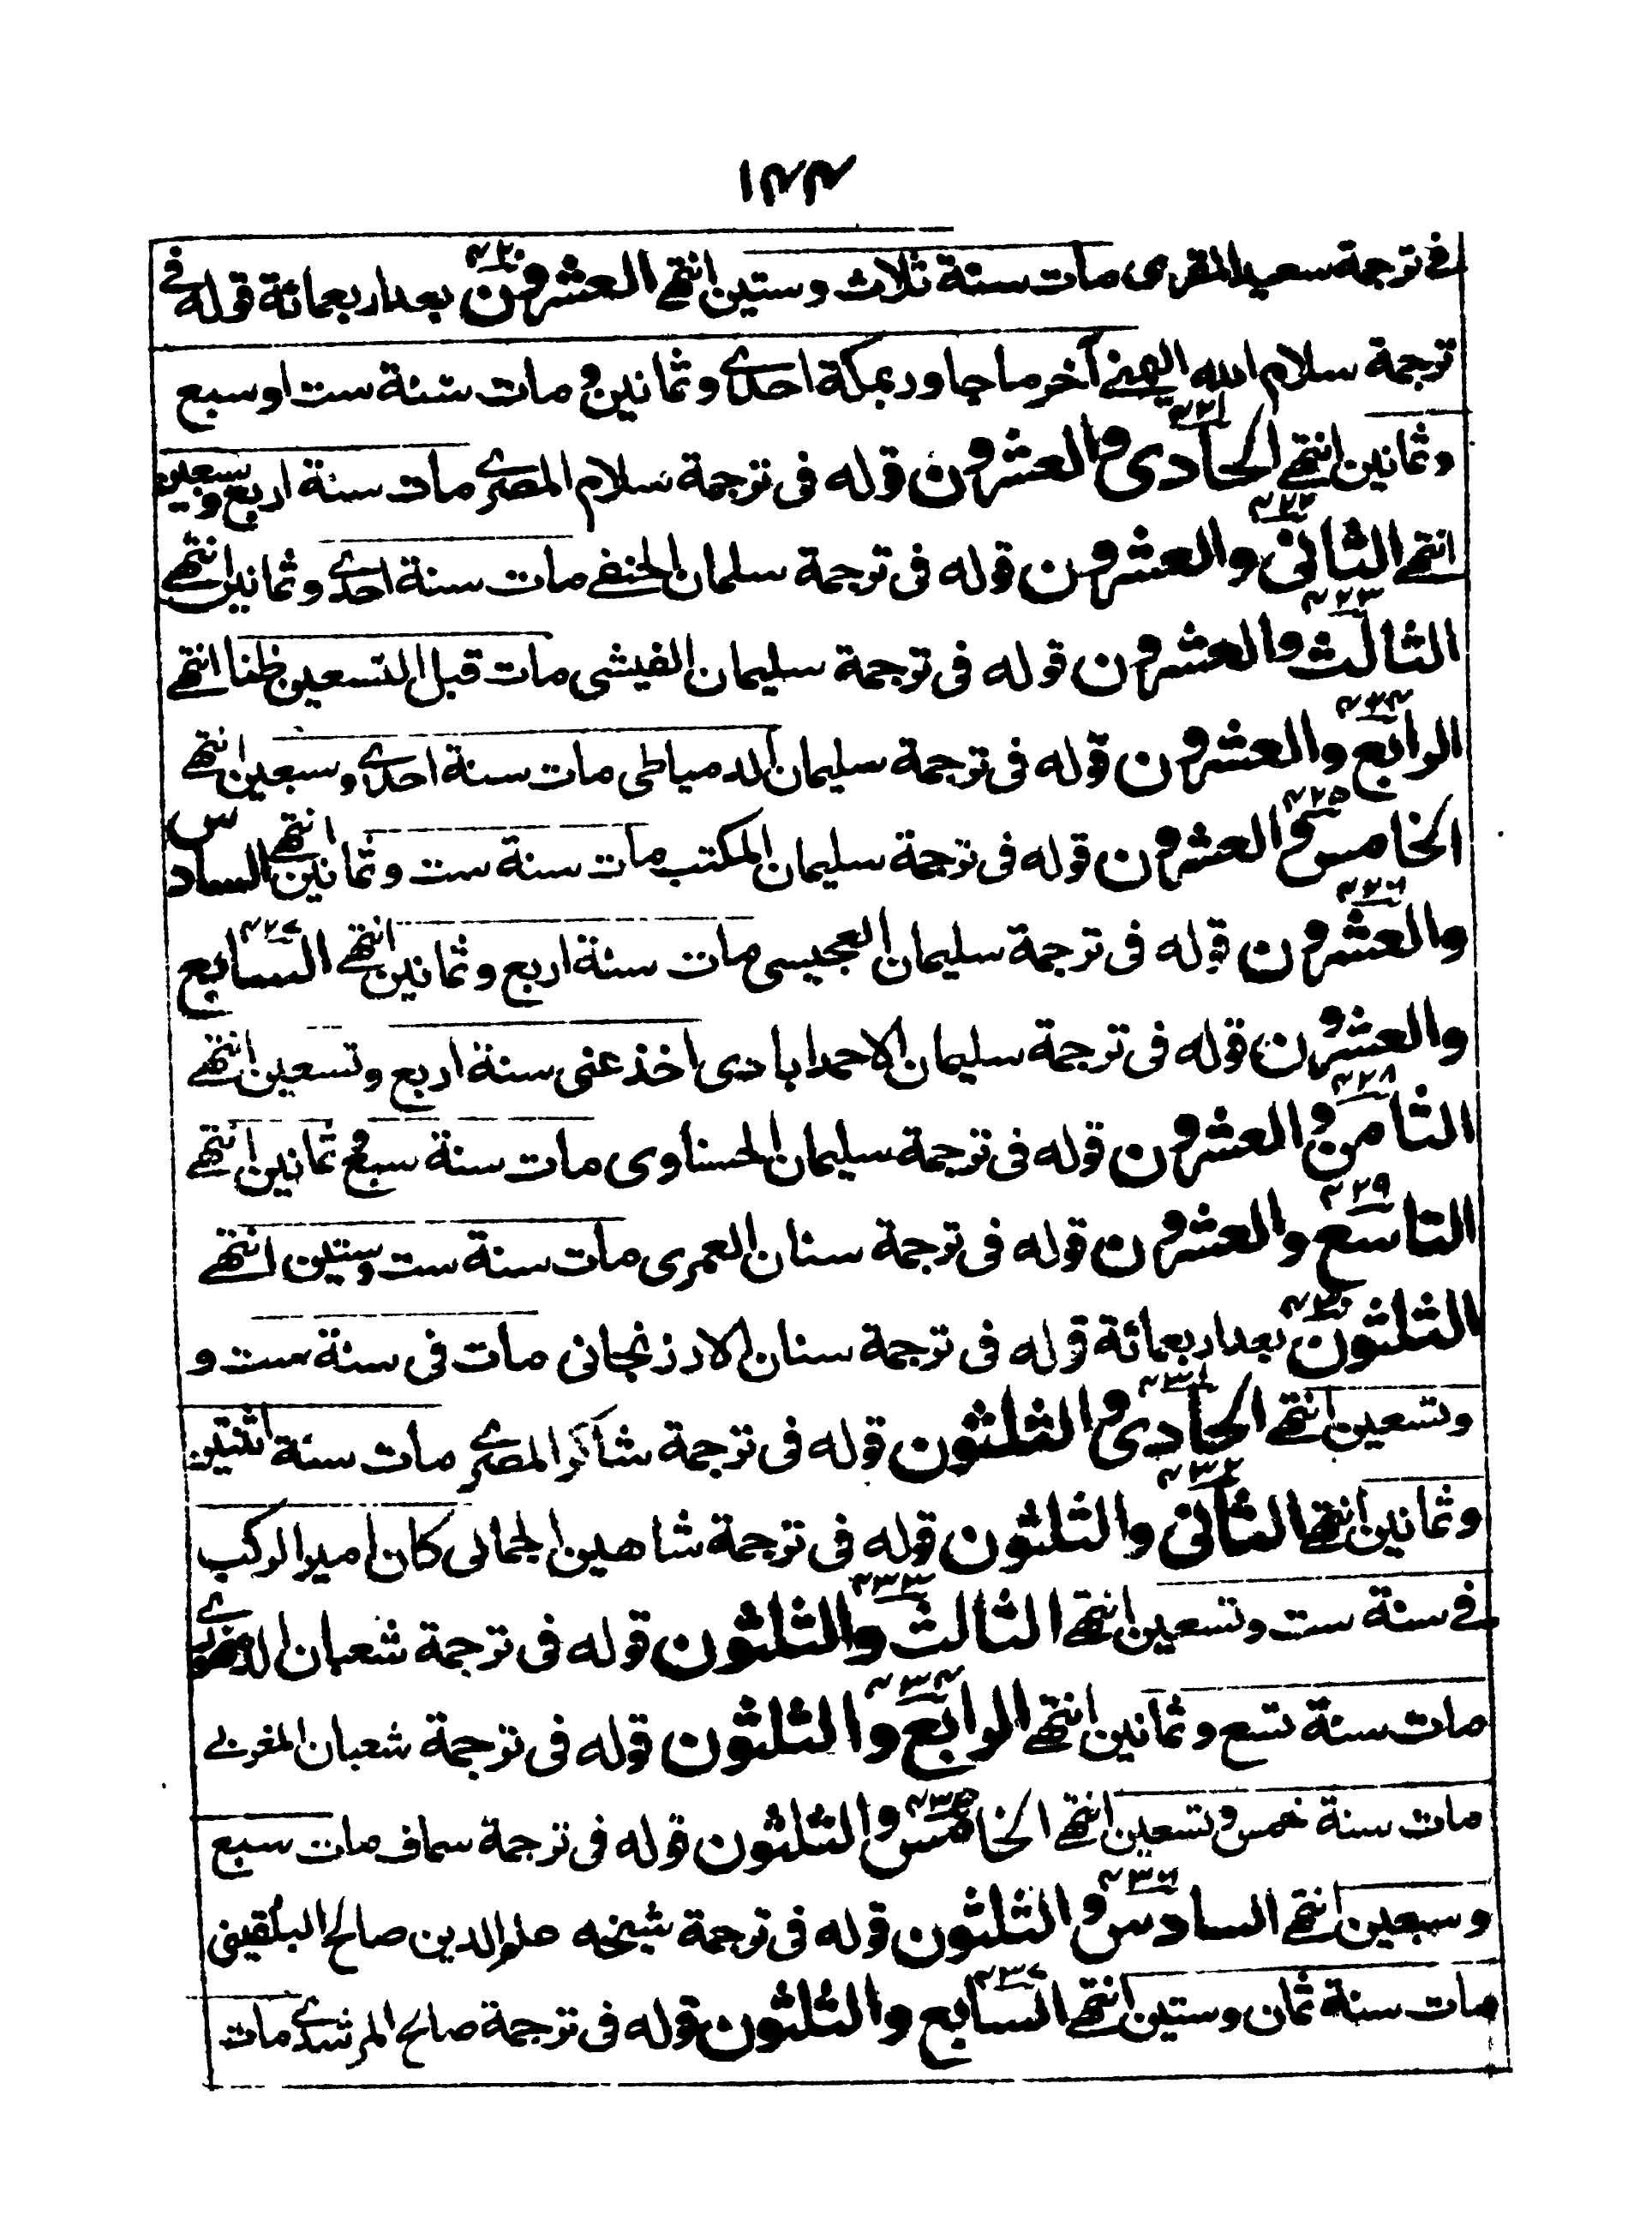 ١٤٤
في ترجمة سعيد المقرى مات سنة ثلاث وستين انتهى العشرون ٤٢٠ بعد اربعمائة قوله في
ترجمة سلام الله آخر ما جاور بمكة احدى وثمانين ومات سنة ست او سبع
وثمانين انتهى الحادى والعشرون ٤٢١ قوله فى ترجمة سلام المصرى مات سنة اربع وسبعين
انتهى الثانى والعشرون ٤٢٢ قوله فى ترجمة سلمان الحنفى مات سنة احدى وثمانين انتهى
الثالث والعشرون ٤٢٣ قوله فى ترجمة سليمان الفيشى مات قبل التسعين ظنا انتهى
الرابع والعشرون ٤٢٤ قوله فى ترجمة سليمان الدمياطى مات سنة احدى وسبعين انتهى
الخامس والعشرون ٤٢٥ قوله فى ترجمة سليمان المكتب مات سنة ست وثمانين انتهى السادس
والعشرون ٤٢٦ قوله فى ترجمة سليمان العجيسى مات سنة اربع وثمانين انتهى السابع ٤٢٧
والعشرون قوله فى ترجمة سليمان الاحمدابادى اخذ عنى سنة اربع وتسعين انتهى
الثامن والعشرون ٤٢٨ قوله فى ترجمة سليمان الحسناوى مات سنة سبع وثمانين انتهى
التاسع والعشرون ٤٢٩ قوله فى ترجمة سنان العمرى مات سنة ست وستين انتهى
الثلثون ٤٣٠ بعد اربعمائة قوله فى ترجمة سنان الارزنجانى مات فى سنة ست و
وتسعين انتهى الحادى والثلثون ٤٣١ قوله فى ترجمة شاكر المصرى مات سنة اثنتين
وثمانين انتهى الثانى والثلثون ٤٣٢ قوله فى ترجمة شاهين الجمالى كان امير الركب
في سنة ست وتسعين انتهى الثالث والثلثون ٤٣٣ قوله فى ترجمة شعبان
مات سنة تسع وثمانين انتهى الرابع والثلثون ٤٣٤ قوله فى ترجمة شعبان المغربى
مات سنة خمس وتسعين انتهى الخامس والثلثون ٤٣٥ قوله فى ترجمة سماف مات سبع
وسبعين انتهى السادس والثلثون ٤٣٦ قوله فى ترجمة شيخه علم الدين صالح البلقينى
مات سنة ثمان وستين انتهى السابع والثلثون ٤٣٧ قوله فى ترجمة صالح المرشدى مات